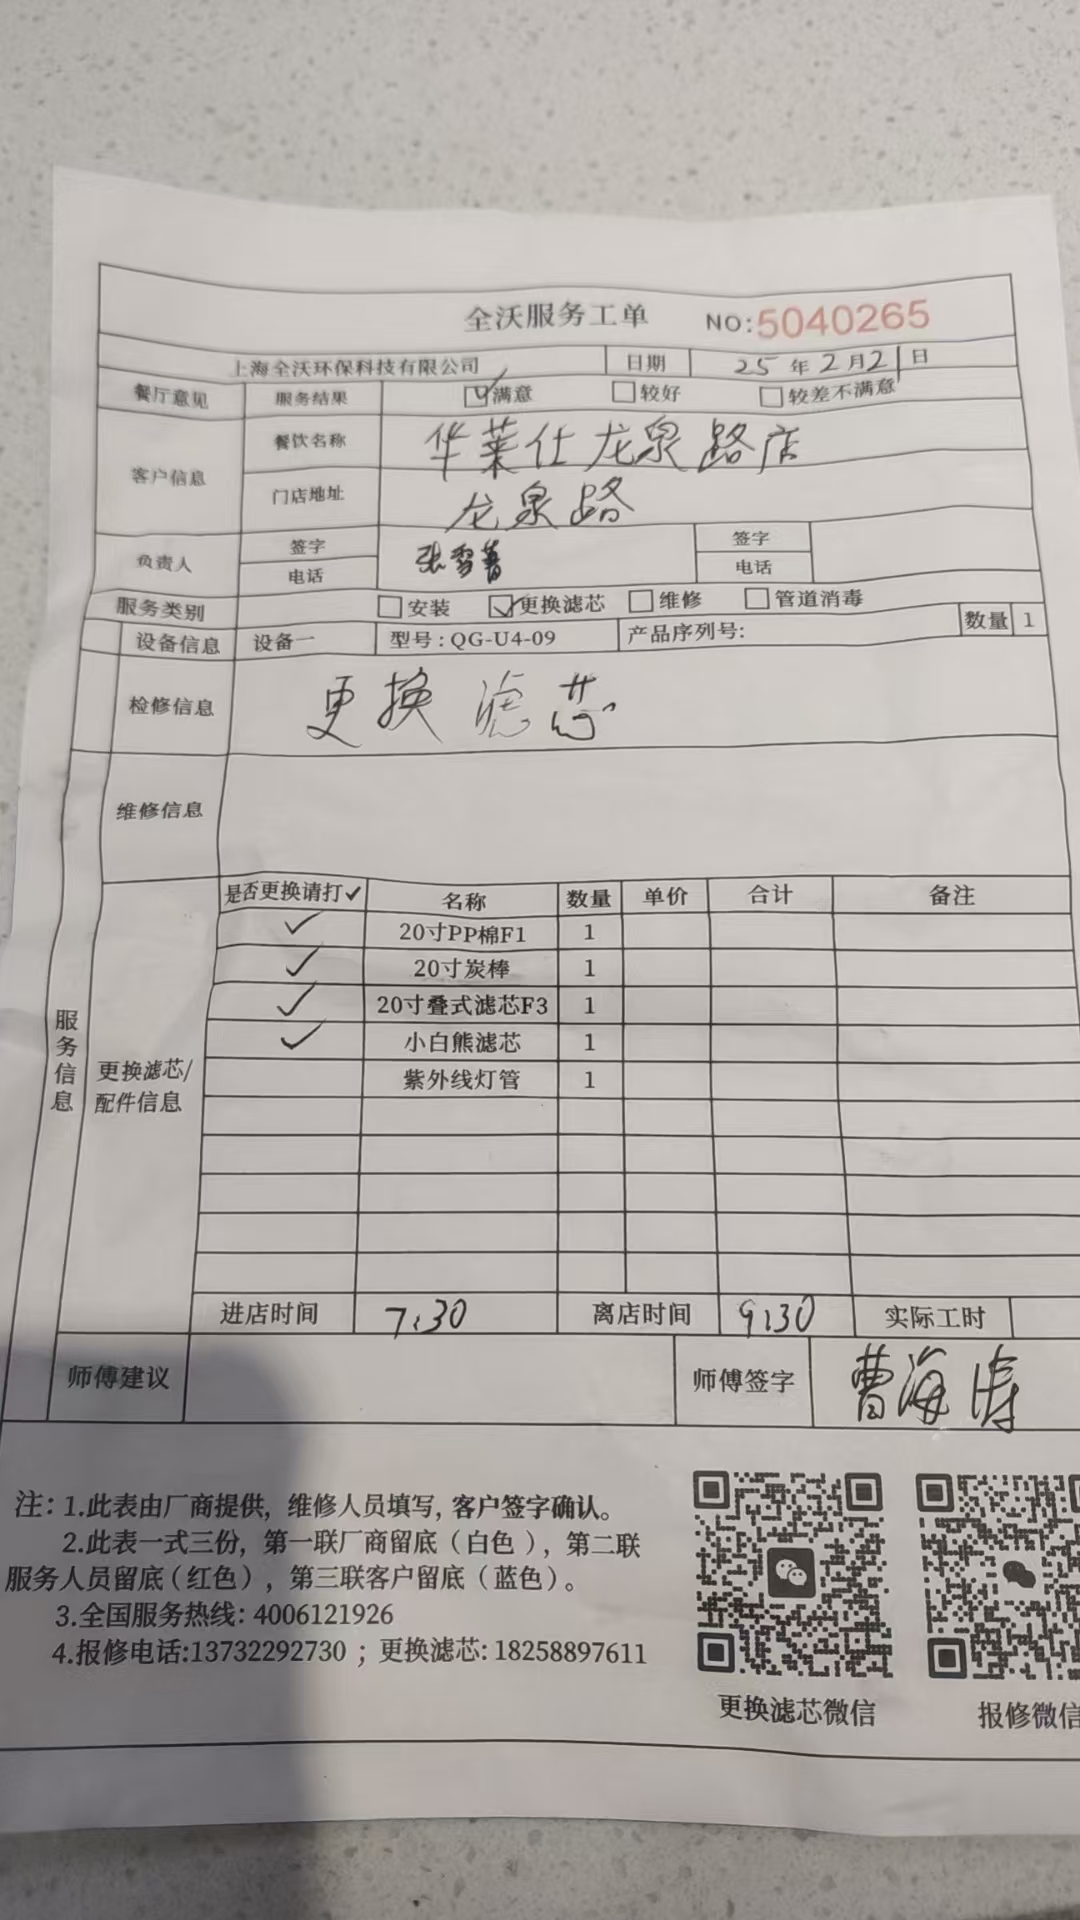 全沃服务工单 NO:5040265
上海全沃环保科技有限公司 日期 25年2月21日
餐厅意见 服务结果 满意 较好 较差不满意
客户信息 餐饮名称 华莱仕龙泉路店
门店地址 龙泉路
负责人 签字 张雪菁 签字
电话 电话
服务类别 安装 更换滤芯 维修 管道消毒
设备信息 设备一 型号:QG-U4-09 产品序列号: 数量 1
检修信息 更换滤芯
维修信息
服务信息
更换滤芯/配件信息
是否更换请打✓ 名称 数量 单价 合计 备注
✓ 20寸PP棉F1 1
✓ 20寸炭棒 1
✓ 20寸叠式滤芯F3 1
✓ 小白熊滤芯 1
紫外线灯管 1
进店时间 7:30 离店时间 9:30 实际工时
师傅建议 师傅签字 曹海涛
注: 1.此表由厂商提供, 维修人员填写, 客户签字确认。
2.此表一式三份, 第一联厂商留底(白色), 第二联
服务人员留底(红色), 第三联客户留底(蓝色)。
3.全国服务热线: 4006121926
4.报修电话:13732292730 ; 更换滤芯: 18258897611
更换滤芯微信 报修微信